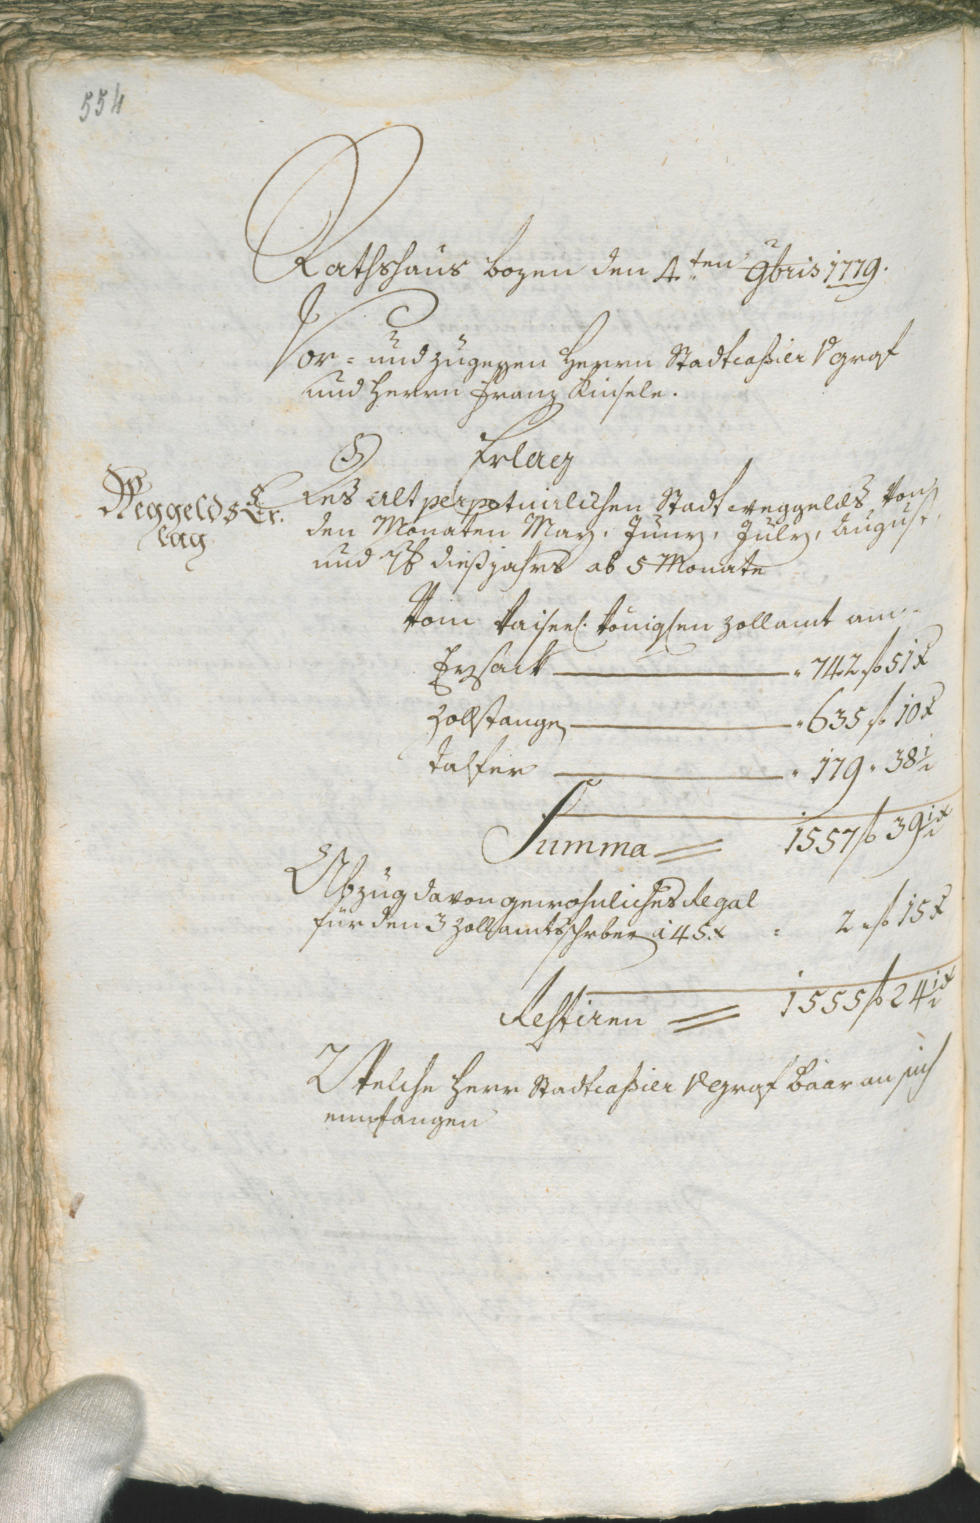 554
Rathshaus Bozen den 4.ten 9bris 1779.
Vor- und zugegen Herrn Stadtcassier Vgraf
und Herrn Franz Kinsele.
Erlag
Weggelds Er-
lag
Des alt perpetuirlichen Stadt weggelds von
den Monaten May, Juny, July, August,
und 7b dießjahrs ab 5 Monate
Vom kaiserl: königlen Zollamt am
Eysack 742 f 51 x
Zollstangen 635 f 10 x
Talfer 179 " 38 1/2
Summa 1557 f 39 1/2 x
Abzug davon gewohnliches Regal
für den 3 Zollamtsschrber à 45 x 2 f 15 x
Restiren 1555 f 24 1/2 x
Welche Herr Stadtcassier Vgraf baar an sich
empfangen